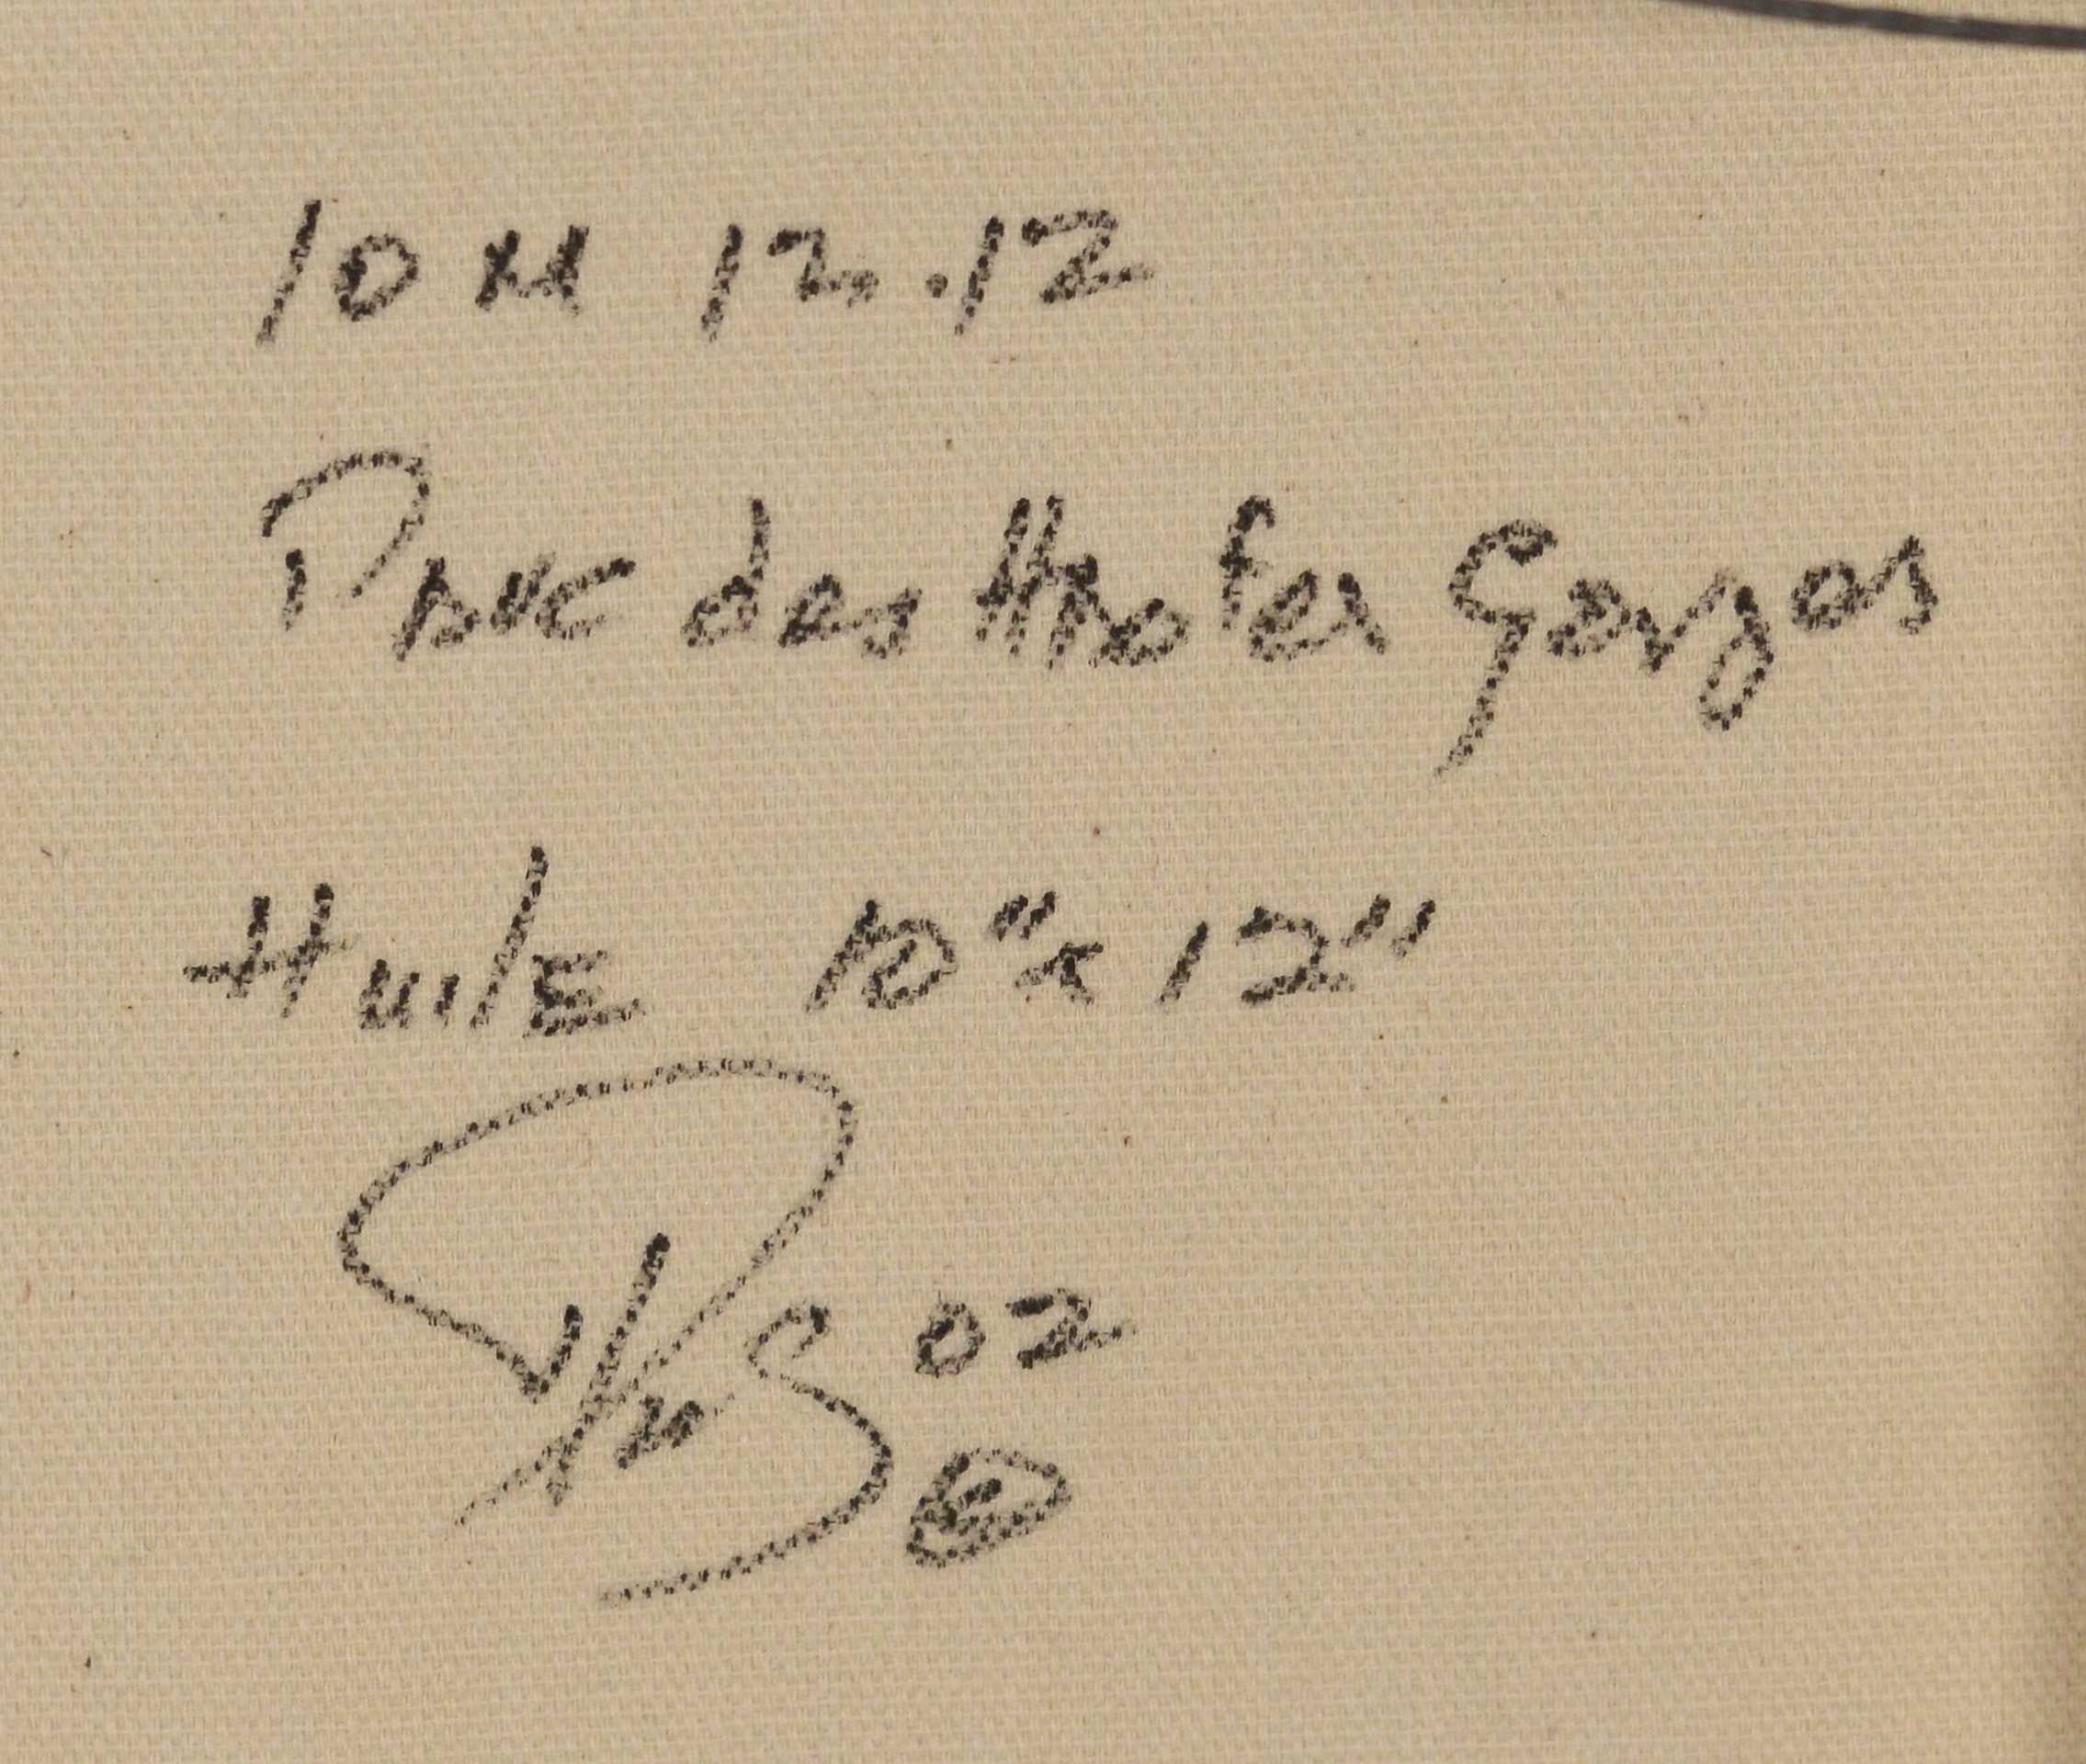 10 x 12.12
Parc des Hautes Gorges
Huile 10" x 12"
02
©